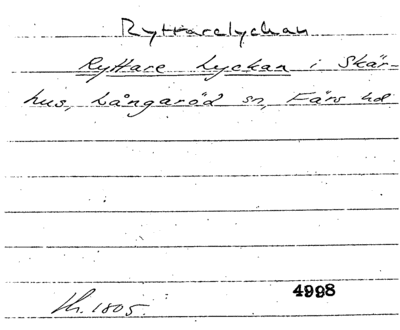 Ryttarelyckan
Ryttare Lyckan i Skär-
hus, Långaröd sn, Färs hd
4998
Lh. 1805.